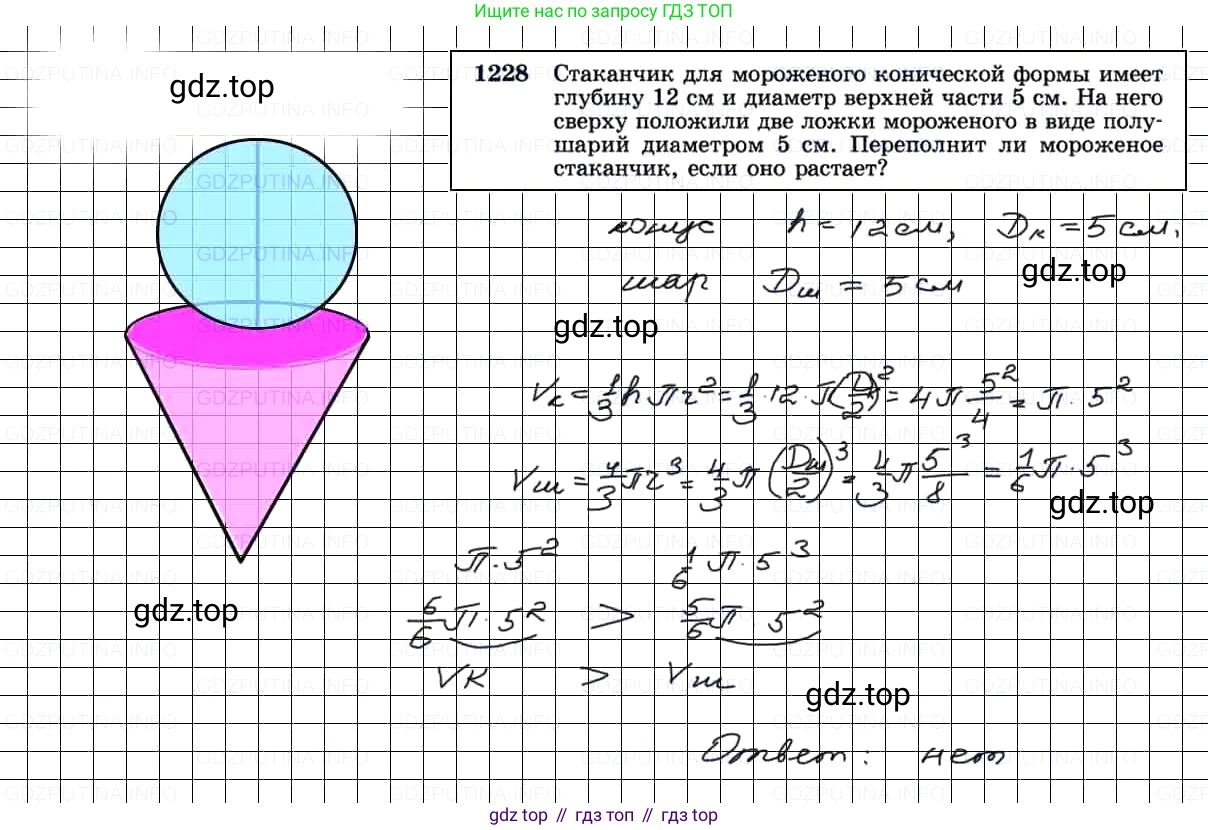 Ищите нас по запросу ГДЗ ТОП
gdz.top
1228 Стаканчик для мороженого конической формы имеет
глубину 12 см и диаметр верхней части 5 см. На него
сверху положили две ложки мороженого в виде полу-
шарий диаметром 5 см. Переполнит ли мороженое
стаканчик, если оно растает?
конус h = 12 см, Dк = 5 см,
шар Dш = 5 см
gdz.top
gdz.top
Vк = 1/3 h πr² = 1/3 · 12 · π(D/2)² = 4π 5²/4 = π · 5²
Vш = 4/3 πr³ = 4/3 π (Dш/2)³ = 4/3 π 5³/8 = 1/6 π · 5³
gdz.top
π · 5² 1/6 π · 5³
gdz.top
6/6 π · 5² > 5/6 π · 5²
Vк > Vш
gdz.top
Ответ: нет
gdz.top // гдз топ // гдз.top
GDZPUTINA.INFO